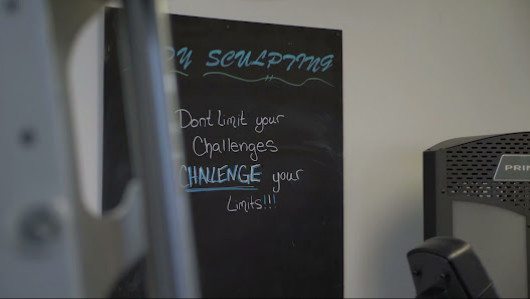 SCULPTING
Dont Limit your
Challenges
CHALLENGE your
Limits!!!